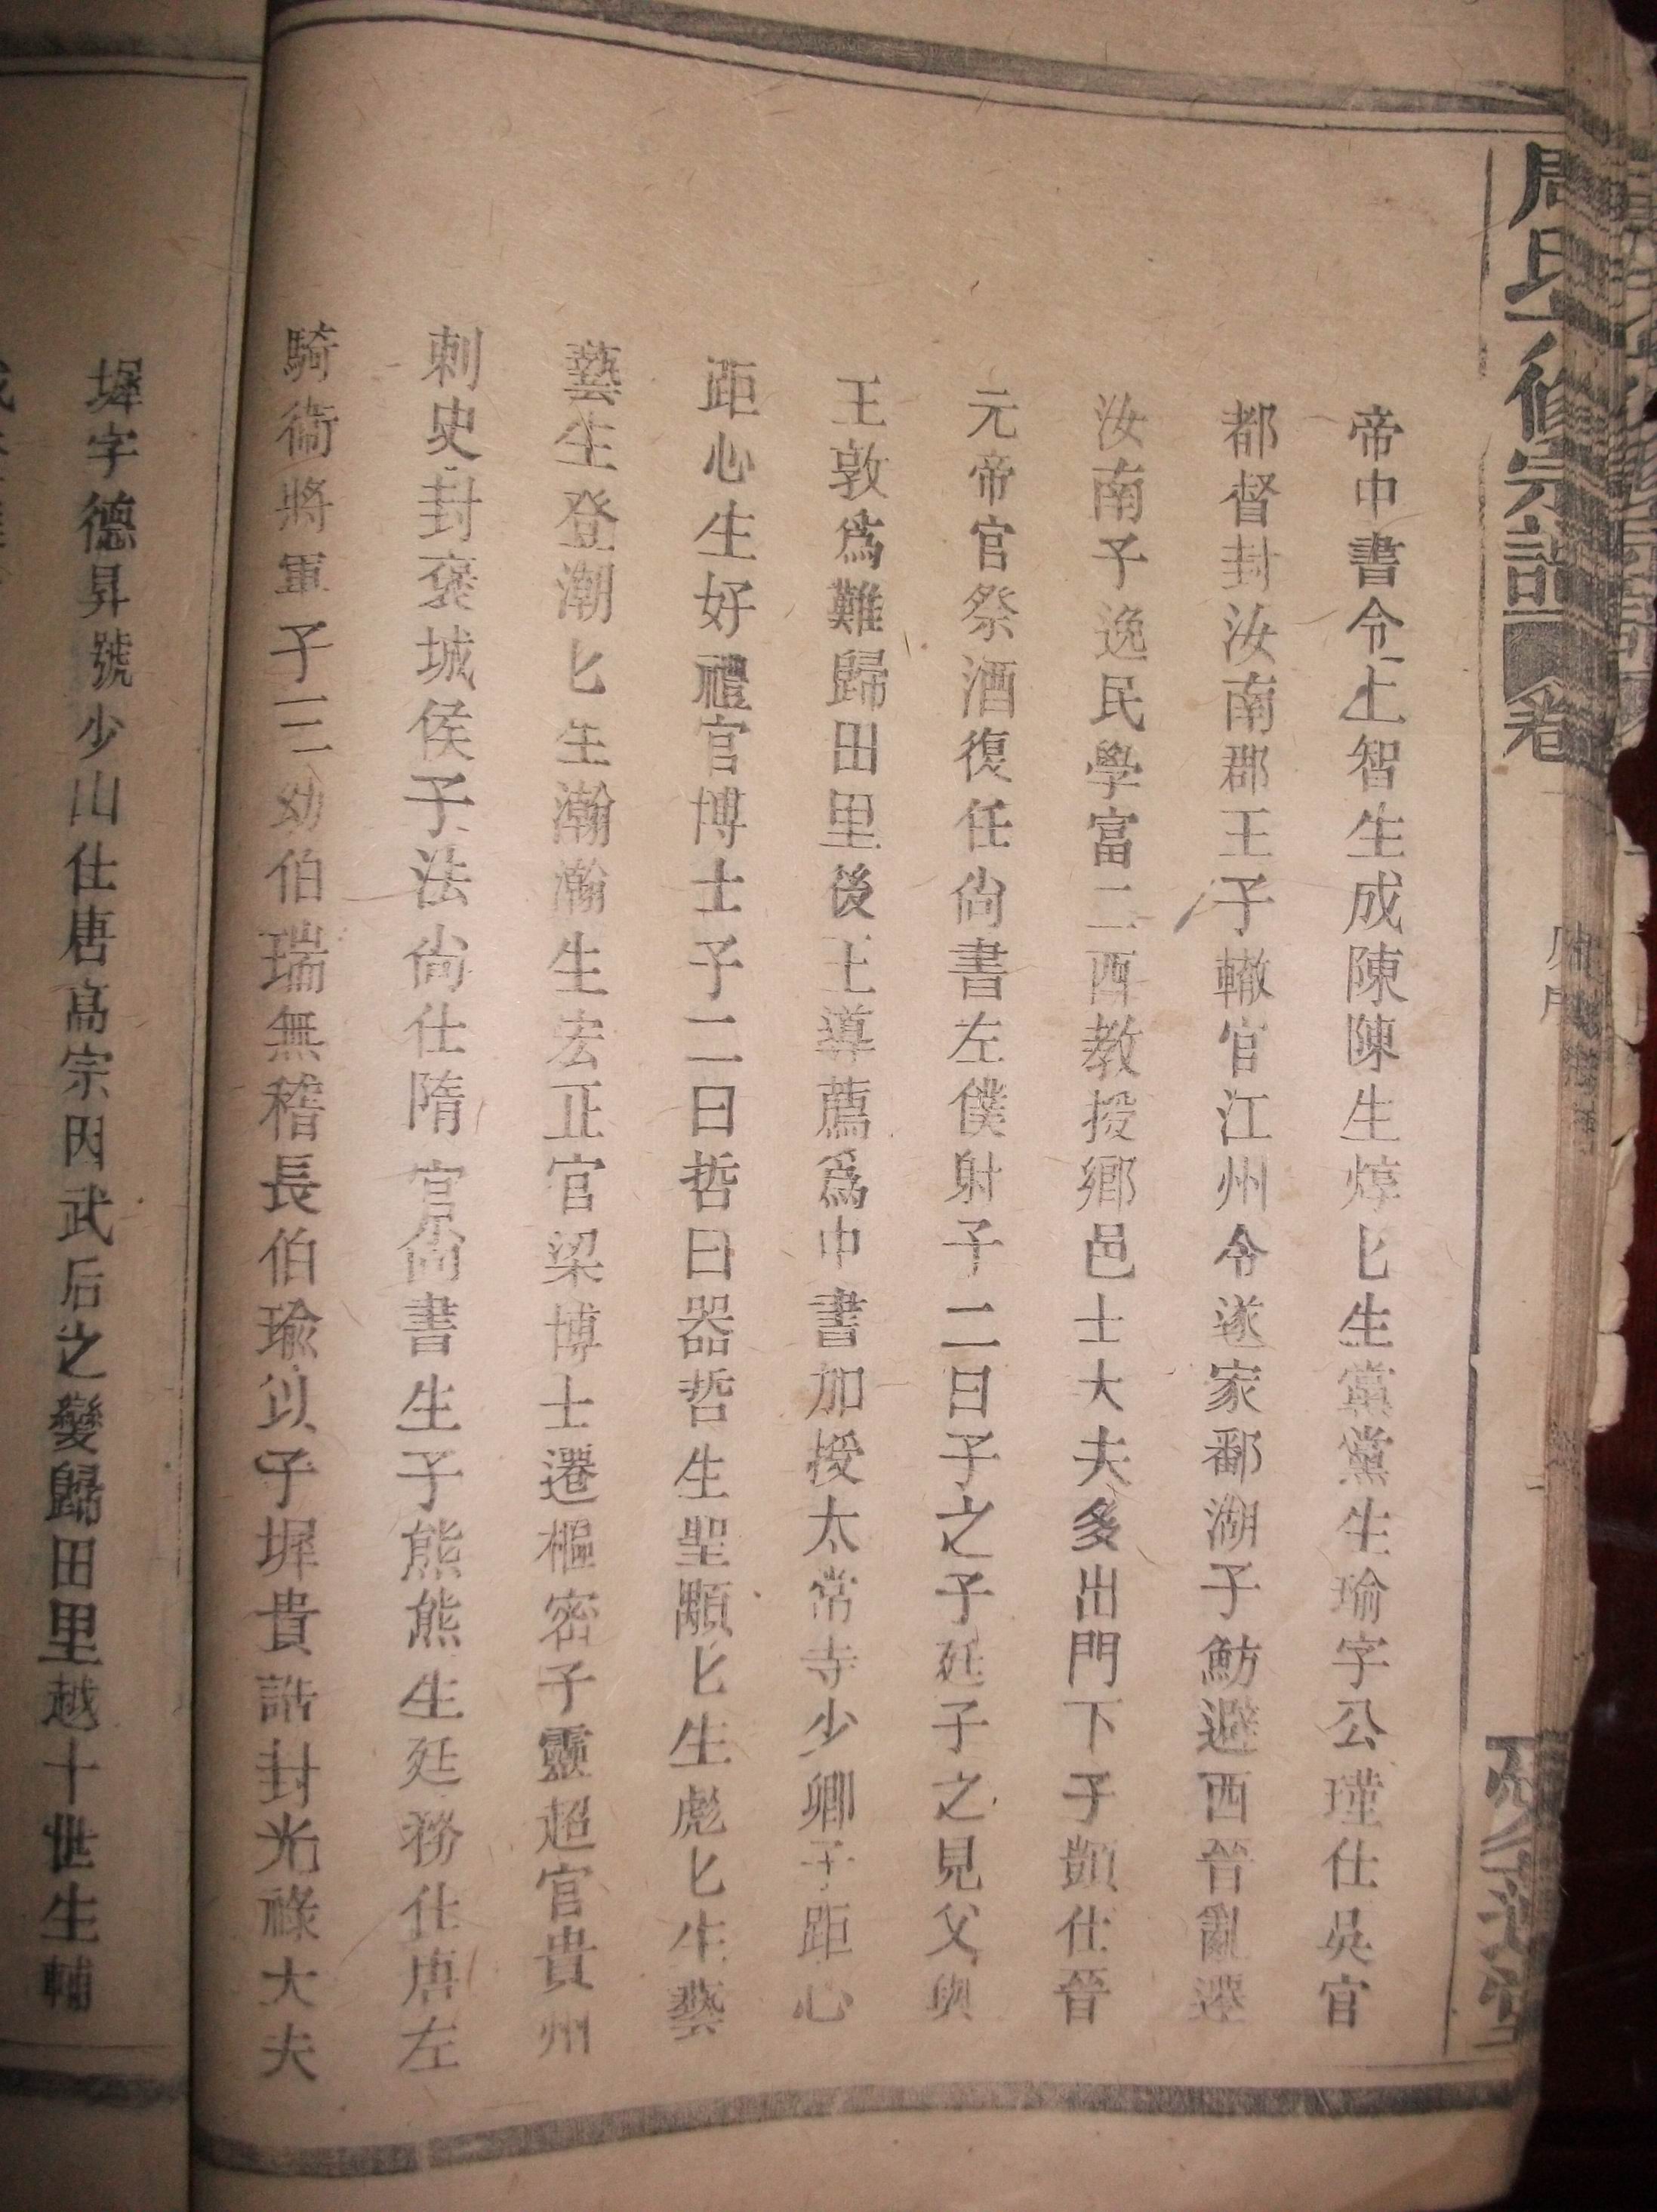 周氏修宗譜 卷
帝中書令上智生成陳陳生焞匕生黨黨生瑜字公瑾仕吳官
都督封汝南郡王子轍官江州令遂家鄱湖子魴避西晉亂遷
汝南子逸民學富二酉教授鄉邑士大夫多出門下子顗仕晉
元帝官祭酒復任尙書左僕射子二曰子之子延子之見父與
王敦爲難歸田里後王導薦爲中書加授太常寺少卿子距心
距心生好禮官博士子二曰哲曰器哲生聖顒匕生彪匕生藝
藝生登潮匕生瀚瀚生宏正官梁博士遷樞密子靈超官貴州
刺史封褒城侯子法尙仕隋官尙書生子熊熊生廷務仕唐左
騎衞將軍子三幼伯瑞無稽長伯瑜以子墀貴誥封光祿大夫
墀字德昇號少山仕唐高宗因武后之變歸田里越十世生輔